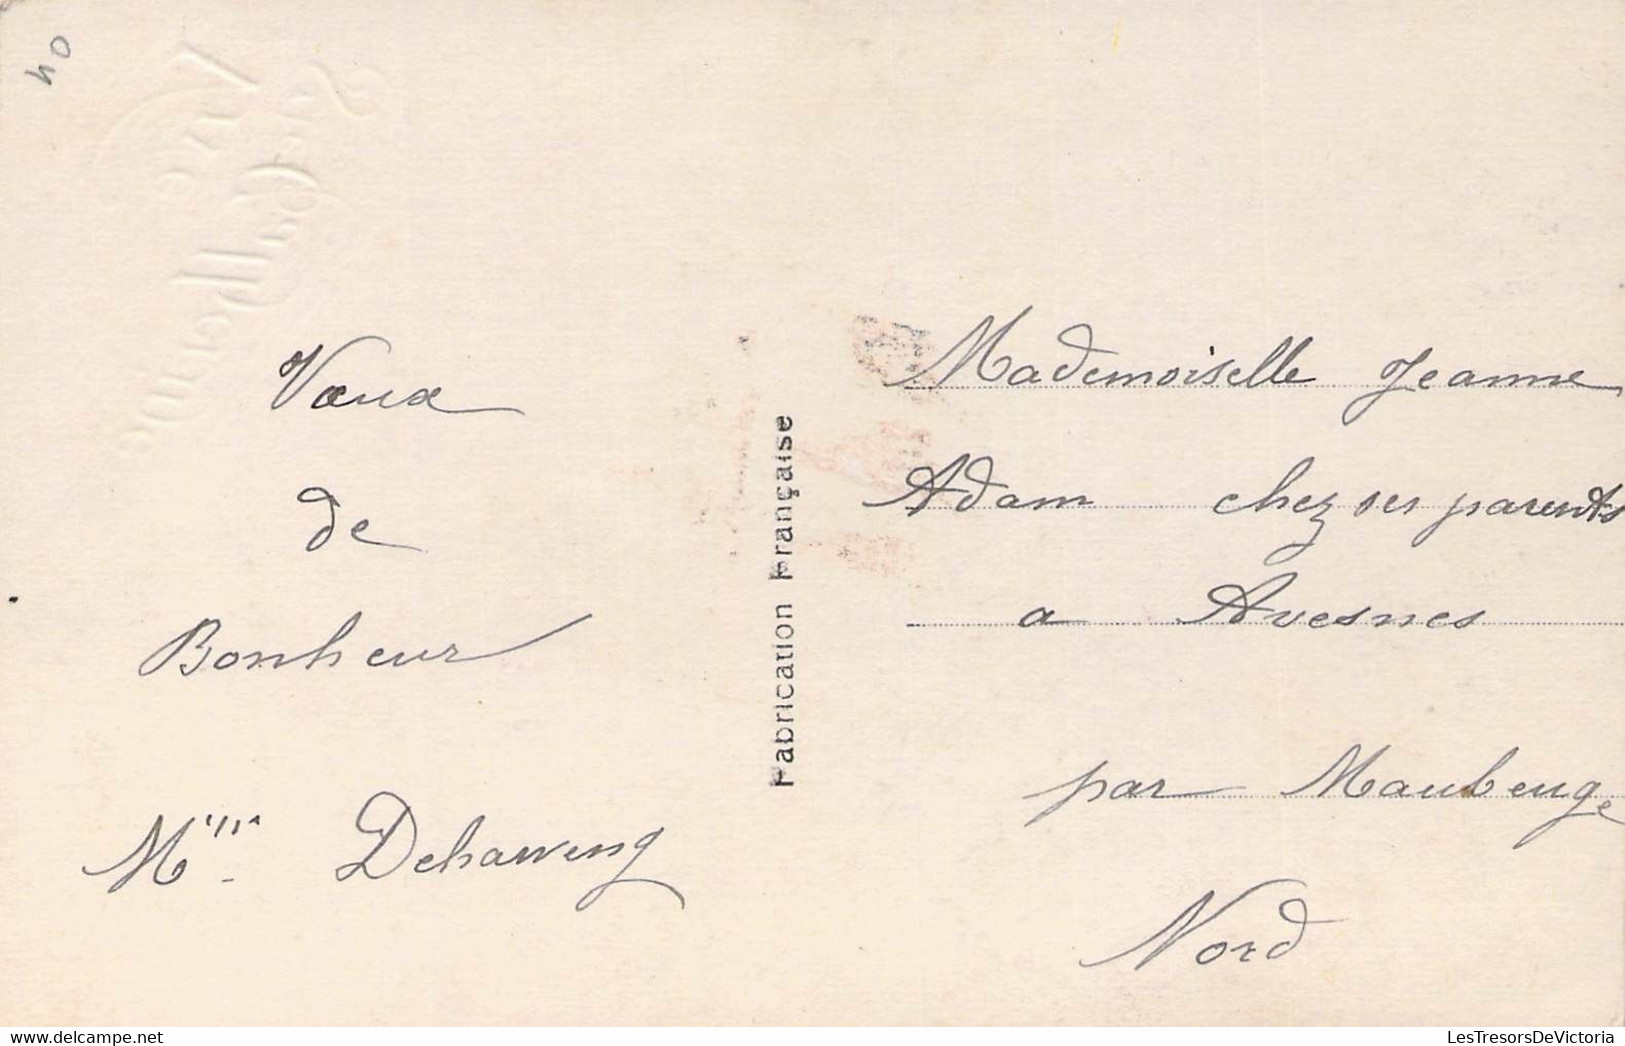 40
Vive
Ste Catherine
Vœux
de
Bonheur
Mademoiselle Jeanne
Adam chez ses parents
a Avesnes
par Maubeuge
Nord
Fabrication Française
LesTresorsDeVictoria